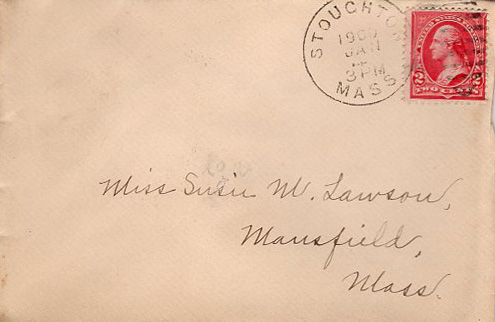 STOUGHTON
1900
JAN
3 PM
MASS
Miss Susie M. Lawson,
Mansfield,
Mass.